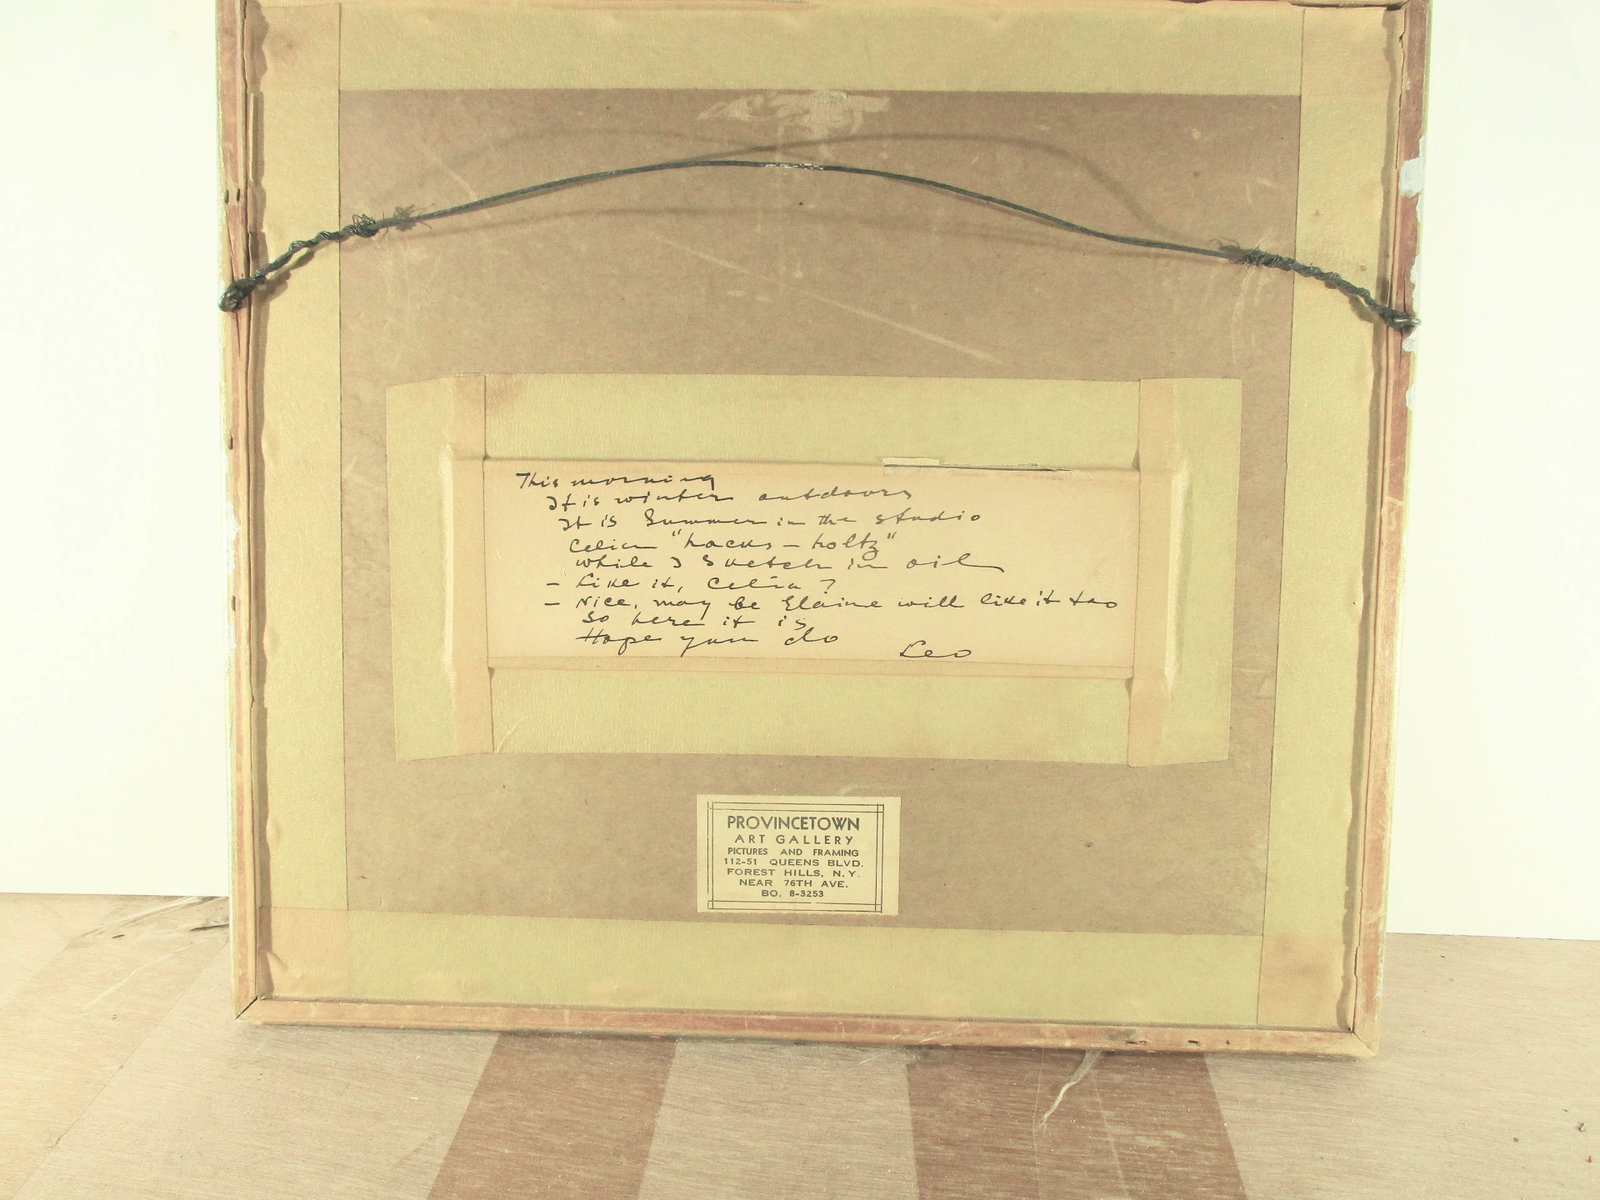 This morning
It is winter outdoors
It is Summer in the studio
Celia "hacks - holtz"
while I Sketch in oil
- Like it, Celia ?
- Nice, may be Elaine will like it too
So here it is
Hope you do Leo
PROVINCETOWN
ART GALLERY
PICTURES AND FRAMING
112-51 QUEENS BLVD.
FOREST HILLS, N.Y.
NEAR 76TH AVE.
BO. 8-3253